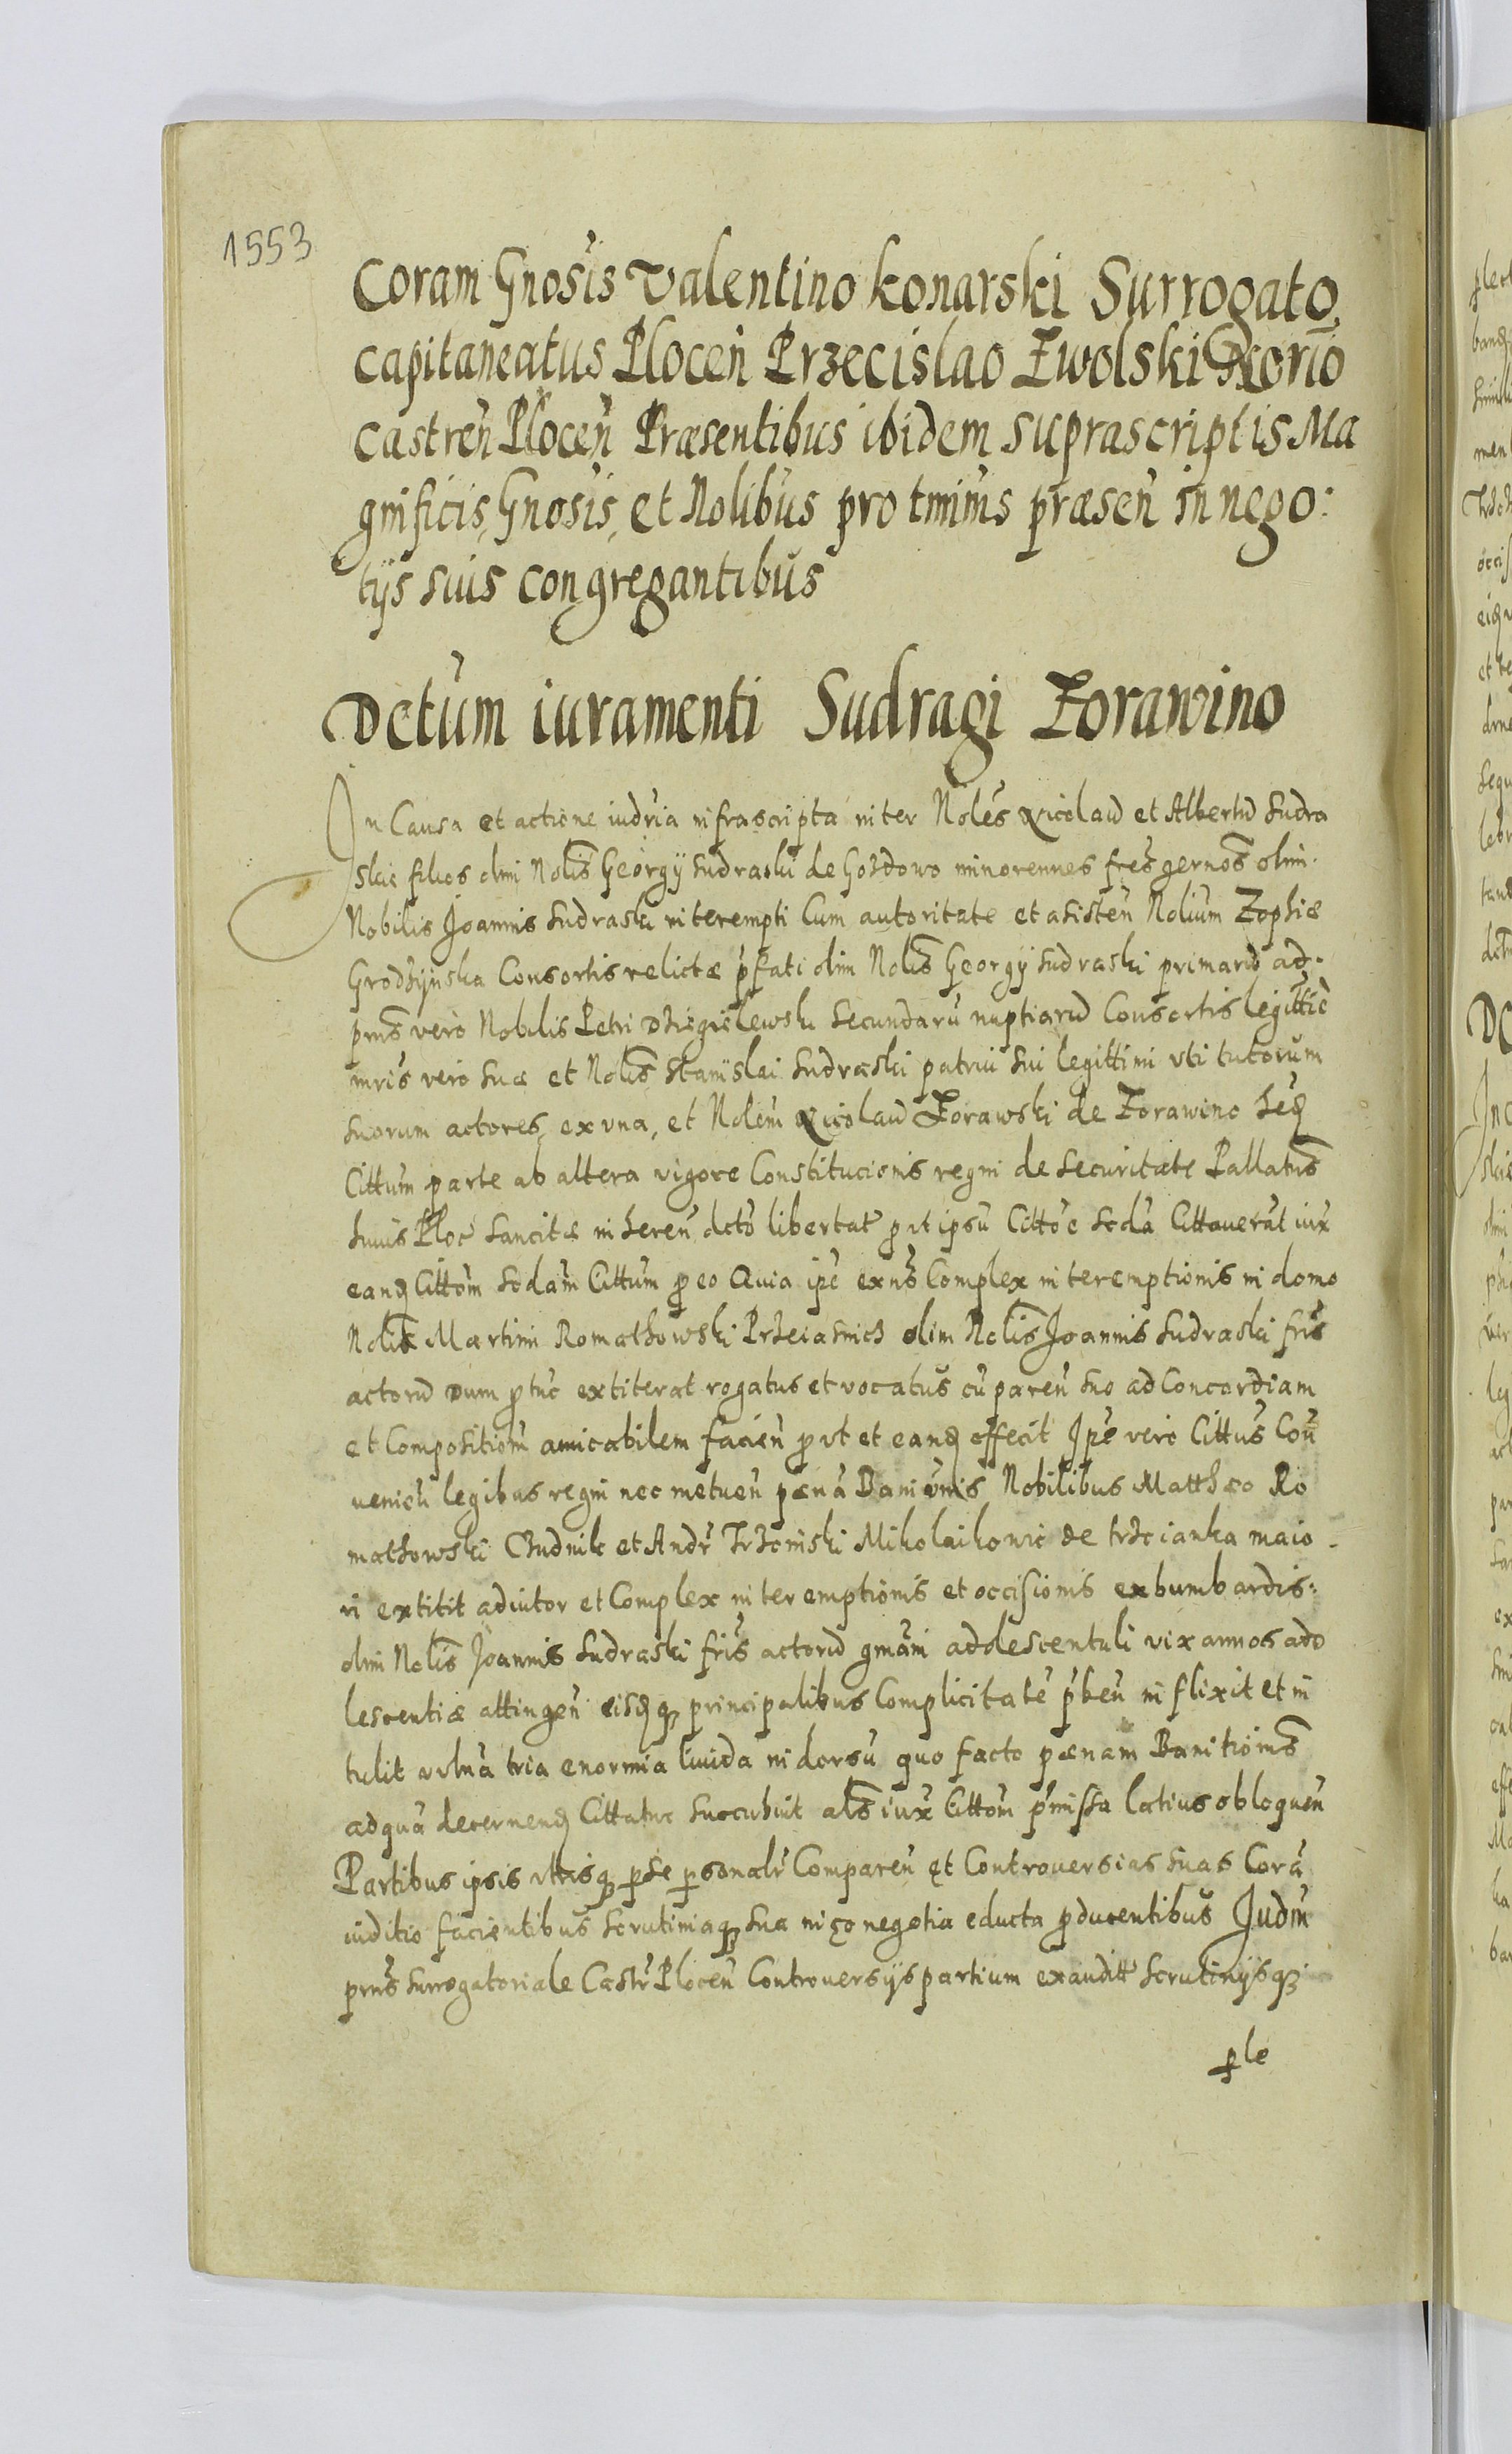 1553
Coram Gnosis Valentino Konarski Surrogato
Capitaneatus Plocen̄ Przecislao Zwolski Nōrio
Castren̄ Plocen̄ Præsentibus ibidem suprascriptis Ma
gnificis, Gnosis, et Nolibus pro tminis præsen̄ in nego:
tijs suis congregantibus
Dctum iuramenti Sudragi Zorawino
In Causa et actione iudria infrascripta inter Noles Nicolaū et Albertū Sudra
skie filios olim Nolis Georgij Sudraski de Gozdowo minorennes fres gernos olim
Nobilis Joannis Sudraski interempti Cum autoritate et asisten̄ Nolium Zophiæ
Grodzijnska Consortis relictæ p̄fati olim Nolis Georgij Sudraski primarū ad
pn̄s vero Nobilis Petri secundarū nuptiarū Consortis legittiē
mris vero suæ et Nolis Stanislai Sudraski patrui sui legittimi vti tutorum
suorum actores, ex vna, et Nolem Nicolaū Zorawski de Zorawino
Cittum parte ab altera vigore Constitucionis regni de securitate Pallatus
huius Ploc sancitæ in heren̄ dcto libertat put ipsū Cittoē scdā Cittaverāt iux
eand Cittom scdam Cittum p eo Quia ipē exns Complex interemptionis in domo
Nolis Martini Romathowski olim Nolis Joannis Sudraski fris
actorū dum ptnc extiterat rogatus et vocatus cū paren̄ suo ad Concordiam
et Compositiom amicabilem facien̄ put et eand effecit Ipe vero Cittus Con̄
venien̄ legibus regni nec metuen̄ pænā Banionis Nobilibus Mattheo Ro
mathowski Chudnik et Andr Trzcinski Mikolaikowic de trzcianka maio
ri extitit adiutor et Complex interemptionis et occisionis ex bumbardis:
olim Nolis Joannis Sudraski fris actorū gmani addescentuli vix annos ado
lescentiæ attingen̄ eisdq principalibus Complicitatē p̄ben̄ inflixit et in
tulit vulna tria enormia livida in dorsu quo facto pænam Banitionis
ad quā decernend Cittatur succubuit als iux Cittom p̄missa latius obloquen̄
Partibus ipsis vtrisq p se psonalr Comparen̄ et Controversias suas Corā
iuditio facientibus scrutiniaq sua in eo negotia educta pducentibus Judm
pns surrogatoriale Castr Plocen̄ Controversijs partium exauditt scrutinijsq
ple